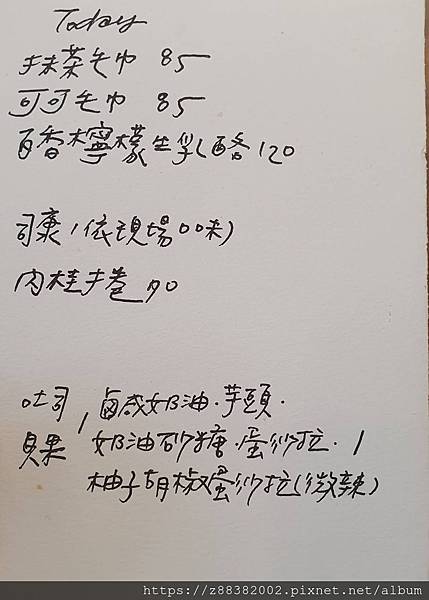 Today
抹茶毛巾 85
可可毛巾 85
百香檸檬生乳酪 120
司康(依現場口味)
肉桂捲 90
吐司, 鹵咸奶油.芋頭.
貝果 奶油砂糖.蛋沙拉. /
柚子胡椒蛋沙拉(微辣)
https://z88382002.pixnet.net/album